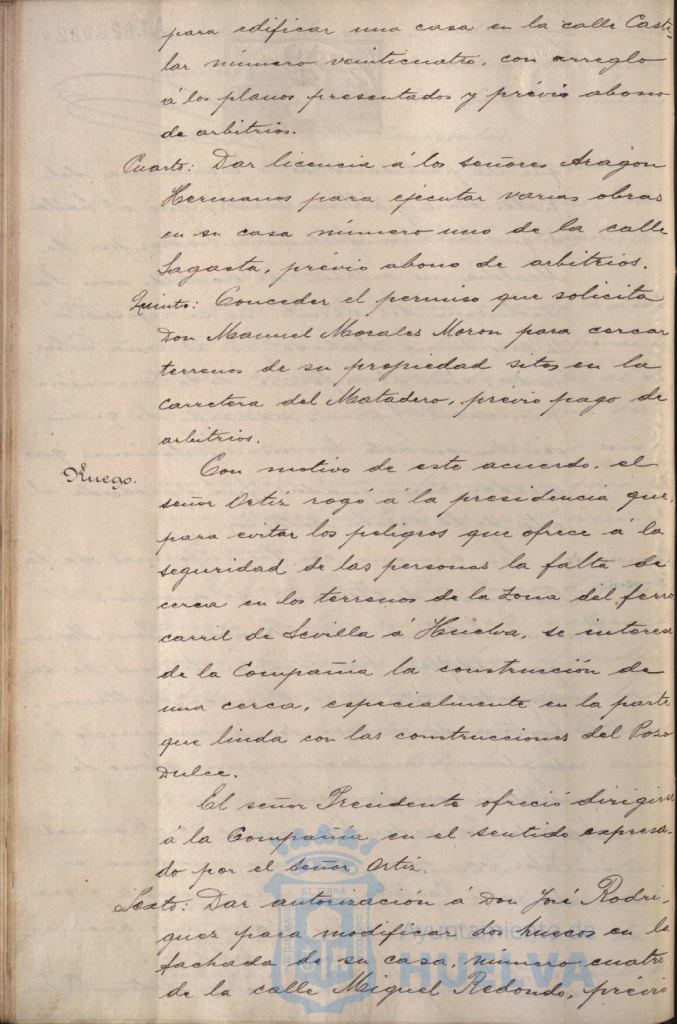 para edificar una casa en la calle Caste-
lar número veinticuatro, con arreglo
á los planos presentados y prévio abono
de arbitrios.
Cuarto: Dar licencia á los señores Aragon
Hermanos para ejecutar varias obras
en su casa número uno de la calle
Sagasta, prévio abono de arbitrios.
Quinto: Conceder el permiso que solicita
Don Manuel Morales Moron para cercar
terrenos de su propiedad sitos en la
carretera del Matadero, prévio pago de
arbitrios.
Ruego. Con motivo de este acuerdo, el
señor Ortiz rogó á la presidencia que,
para evitar los peligros que ofrece á la
seguridad de las personas la falta de
cerca en los terrenos de la zona del ferro
carril de Sevilla á Huelva, se interese
de la Compañía la construcción de
una cerca, especialmente en la parte
que linda con las construcciones del Pozo
Dulce.
El señor Presidente ofreció dirigirse
á la Compañía en el sentido expresa-
do por el señor Ortiz.
Sexto: Dar autorización á Don José Rodri-
guez para modificar dos huecos en la
fachada de su casa, número cuatro
de la calle Miguel Redondo, prévio
Ayuntamiento de
HUELVA